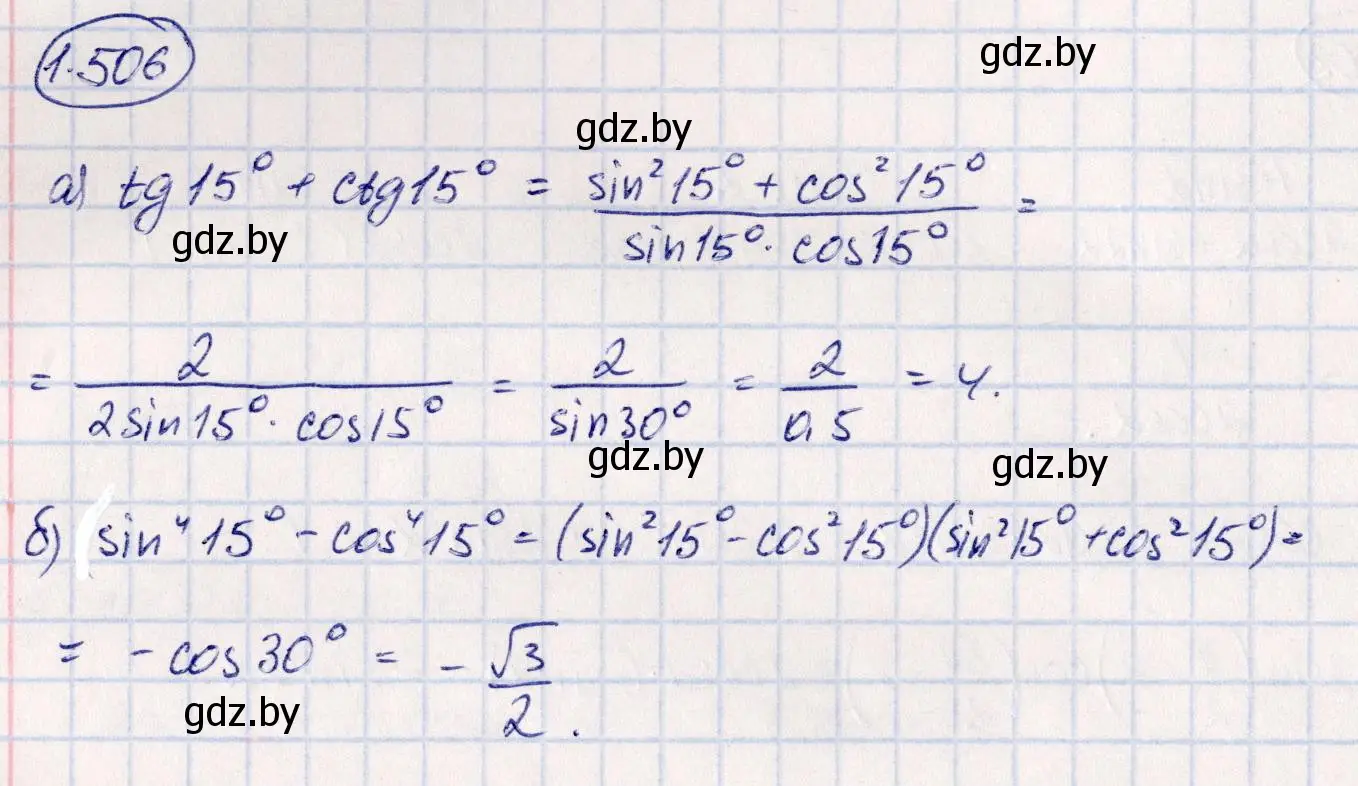 1.506
gdz.by
gdz.by
а) tg15° + ctg15° = (sin²15° + cos²15°)/(sin15° · cos15°) =
gdz.by
= 2/(2sin15° · cos15°) = 2/sin30° = 2/0,5 = 4.
gdz.by
gdz.by
б) (sin⁴15° - cos⁴15° = (sin²15° - cos²15°)(sin²15° + cos²15°) =
= - cos30° = - √3/2.
gdz.by